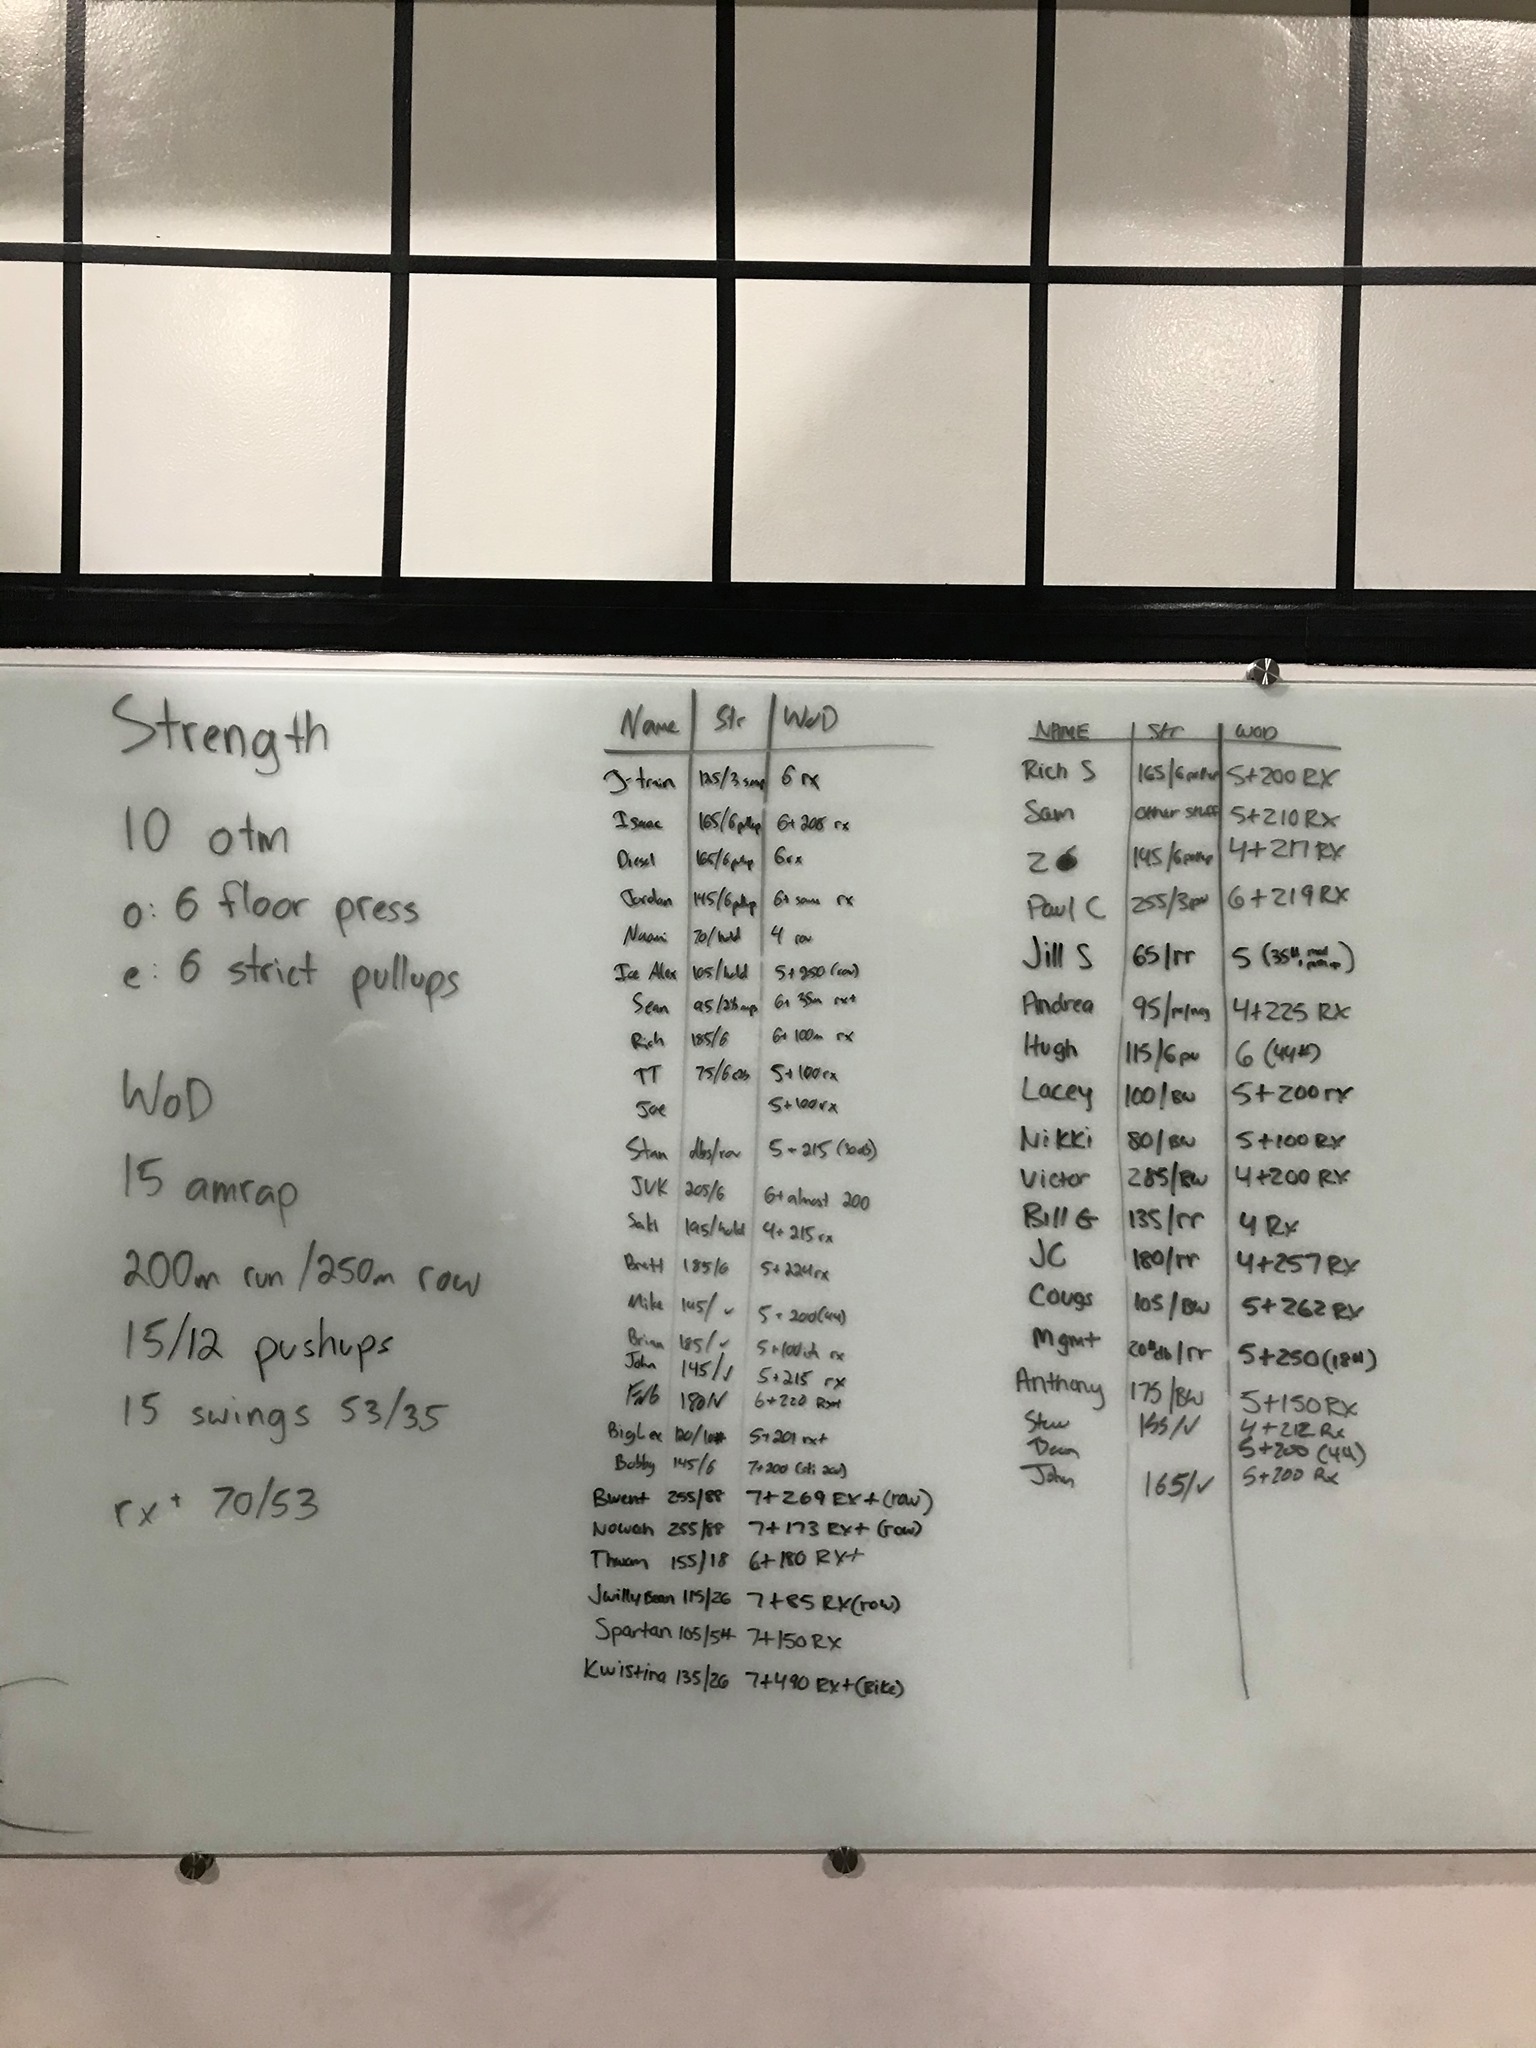 Strength
10 otm
o: 6 floor press
e: 6 strict pullups
WoD
15 amrap
200m run/250m row
15/12 pushups
15 swings 53/35
rx+ 70/53
Name Str WoD
J-train 125/3 6 rx
Isaac 165/6 pullup 6+205 rx
Diesel 165/6 pullup 6rx
Jordan 145/6 pullup 6+ some rx
Naomi 70/hold 4 row
Ice Alex 105/hold 5+250 (row)
Sean 95/ 6+ 35m rx+
Rich 185/6 6+ 100m rx
TT 75/6 5+100rx
Joe 5+100rx
Stan dbs/row 5+215
JVK 205/6 6+almost 200
Saki 195/hold 4+215rx
Brett 185/6 5+224rx
Mike 145/✓ 5+200(44)
Brian 185/✓ 5+100ish rx
John 145/✓ 5+215 rx
180/✓ 6+220 Rx+
BigLex 120/10# 5+201 rx+
Bobby 145/6 7+200
Bwent 255/88 7+269 RX+(row)
Nowah 255/88 7+173 RX+ (row)
Thwam 155/18 6+180 RX+
JwillyBean 115/26 7+85 RX(row)
Spartan 105/5# 7+150 RX
Kwistina 135/26 7+490 RX+(Bike)
NAME Str WOD
Rich S 165/6 pullup 5+200 RX
Sam other stuff 5+210 RX
Z 145/6 pullup 4+217 RX
Paul C 255/3pu 6+219 RX
Jill S 65/rr 5 (35#,
Andrea 95/rr/neg 4+225 RX
Hugh 115/6pu 6 (44#)
Lacey 100/BW 5+200 rx
Nikki 80/BW 5+100 RX
Victor 285/BW 4+200 RX
Bill G 135/rr 4 RX
JC 180/rr 4+257 RX
Cougs 105/BW 5+262 RX
Mgmt 20#db/rr 5+250(18#)
Anthony 175/BW 5+150 RX
Stew 155/✓ 4+212 Rx
Dean 5+200 (44)
John 165/✓ 5+200 Rx